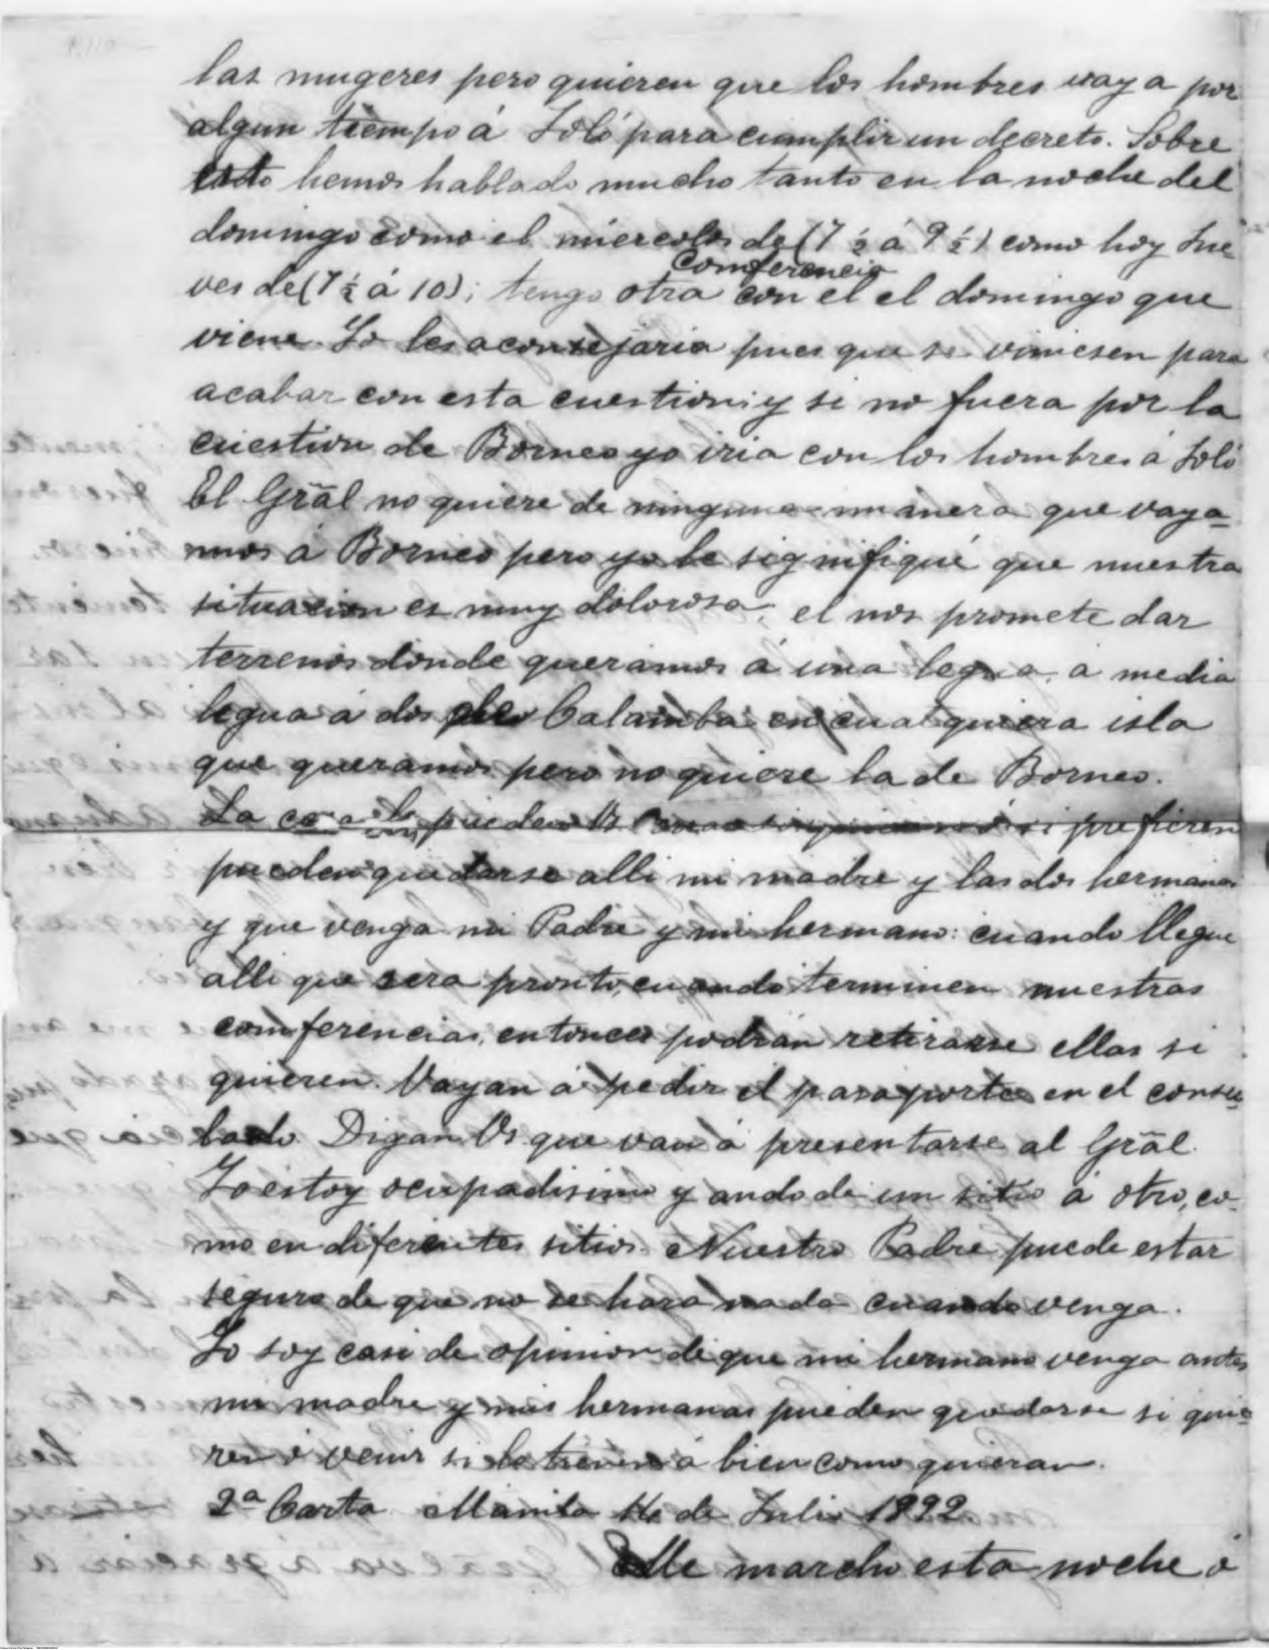 las mugeres pero quieren que los hombres vaya por
algun tiempo á Joló para cumplir un decreto. Sobre
esto hemos hablado mucho tanto en la noche del
domingo como el miercoles de (7 ½ á 9 ½) como hoy Jue-
conferencia
ves de (7 ½ á 10); tengo otra con el el domingo que
viene. Yo les aconsejaria pues que se viniesen para
acabar con esta cuestion; y si no fuera por la
cuestion de Borneo yo iria con los hombres á Joló
El Grãl no quiere de ninguna manera que vaya-
mos á Borneo pero yo le signifiqué que nuestra
situacion es muy dolorosa; el nos promete dar
terrenos donde queramos á una legua, á media
legua á dos de Calamba en cualquiera isla
que queramos pero no quiere la de Borneo.
La pueden Vs si prefieren
pueden quedarse alli mi madre y las dos hermanas
y que venga mi Padre y mi hermano: cuando llegue
alli que sera pronto, cuando terminen nuestras
comferencias, entonces podrán retirarse ellas si
quieren. Vayan á pedir el pasaporte en el consu-
lado. Digan Vs que van á presentarse al Grãl.
Yo estoy ocupadisimo y ando de un sitio á otro, co-
mo en diferentes sitios. Nuestro Padre puede estar
seguro de que no se hara nada cuando venga.
Yo soy casi de opinion de que mi hermano venga antes
mi madre y mis hermanas pueden quedarse si quie-
ren ó venir si lo tienen á bien como quieran.
2ª Carta Manila de Julio 1892
Me marcho esta noche á